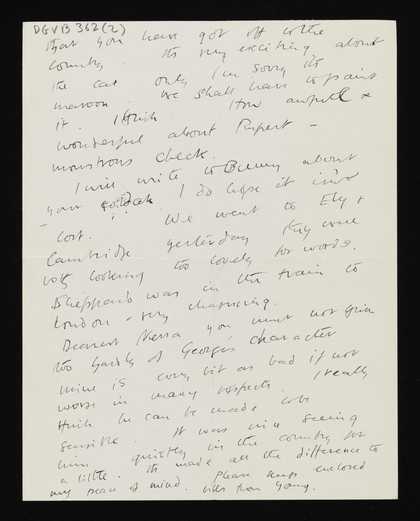 DGVB 362(2)
that you have got off to the
country. Its very exciting about
the car only I'm sorry its
maroon. We shall have to paint
it I think. How awful &
wonderful about Rupert -
monstrous cheek.
I will write to Bunny about
your . I do hope it isn't
lost. We went to Ely &
Cambridge yesterday they were
both looking too lovely for words.
Sheppard was in the train to
London - very charming.
Dearest Nessa you must not think
too badly of George's character
mine is every bit as bad if not
worse in many respects. I really
think he can be made
sensible. It was nice seeing
him quietly in the country for
a little. Its made all the difference to
my peace of mind. Please keep enclosed
.